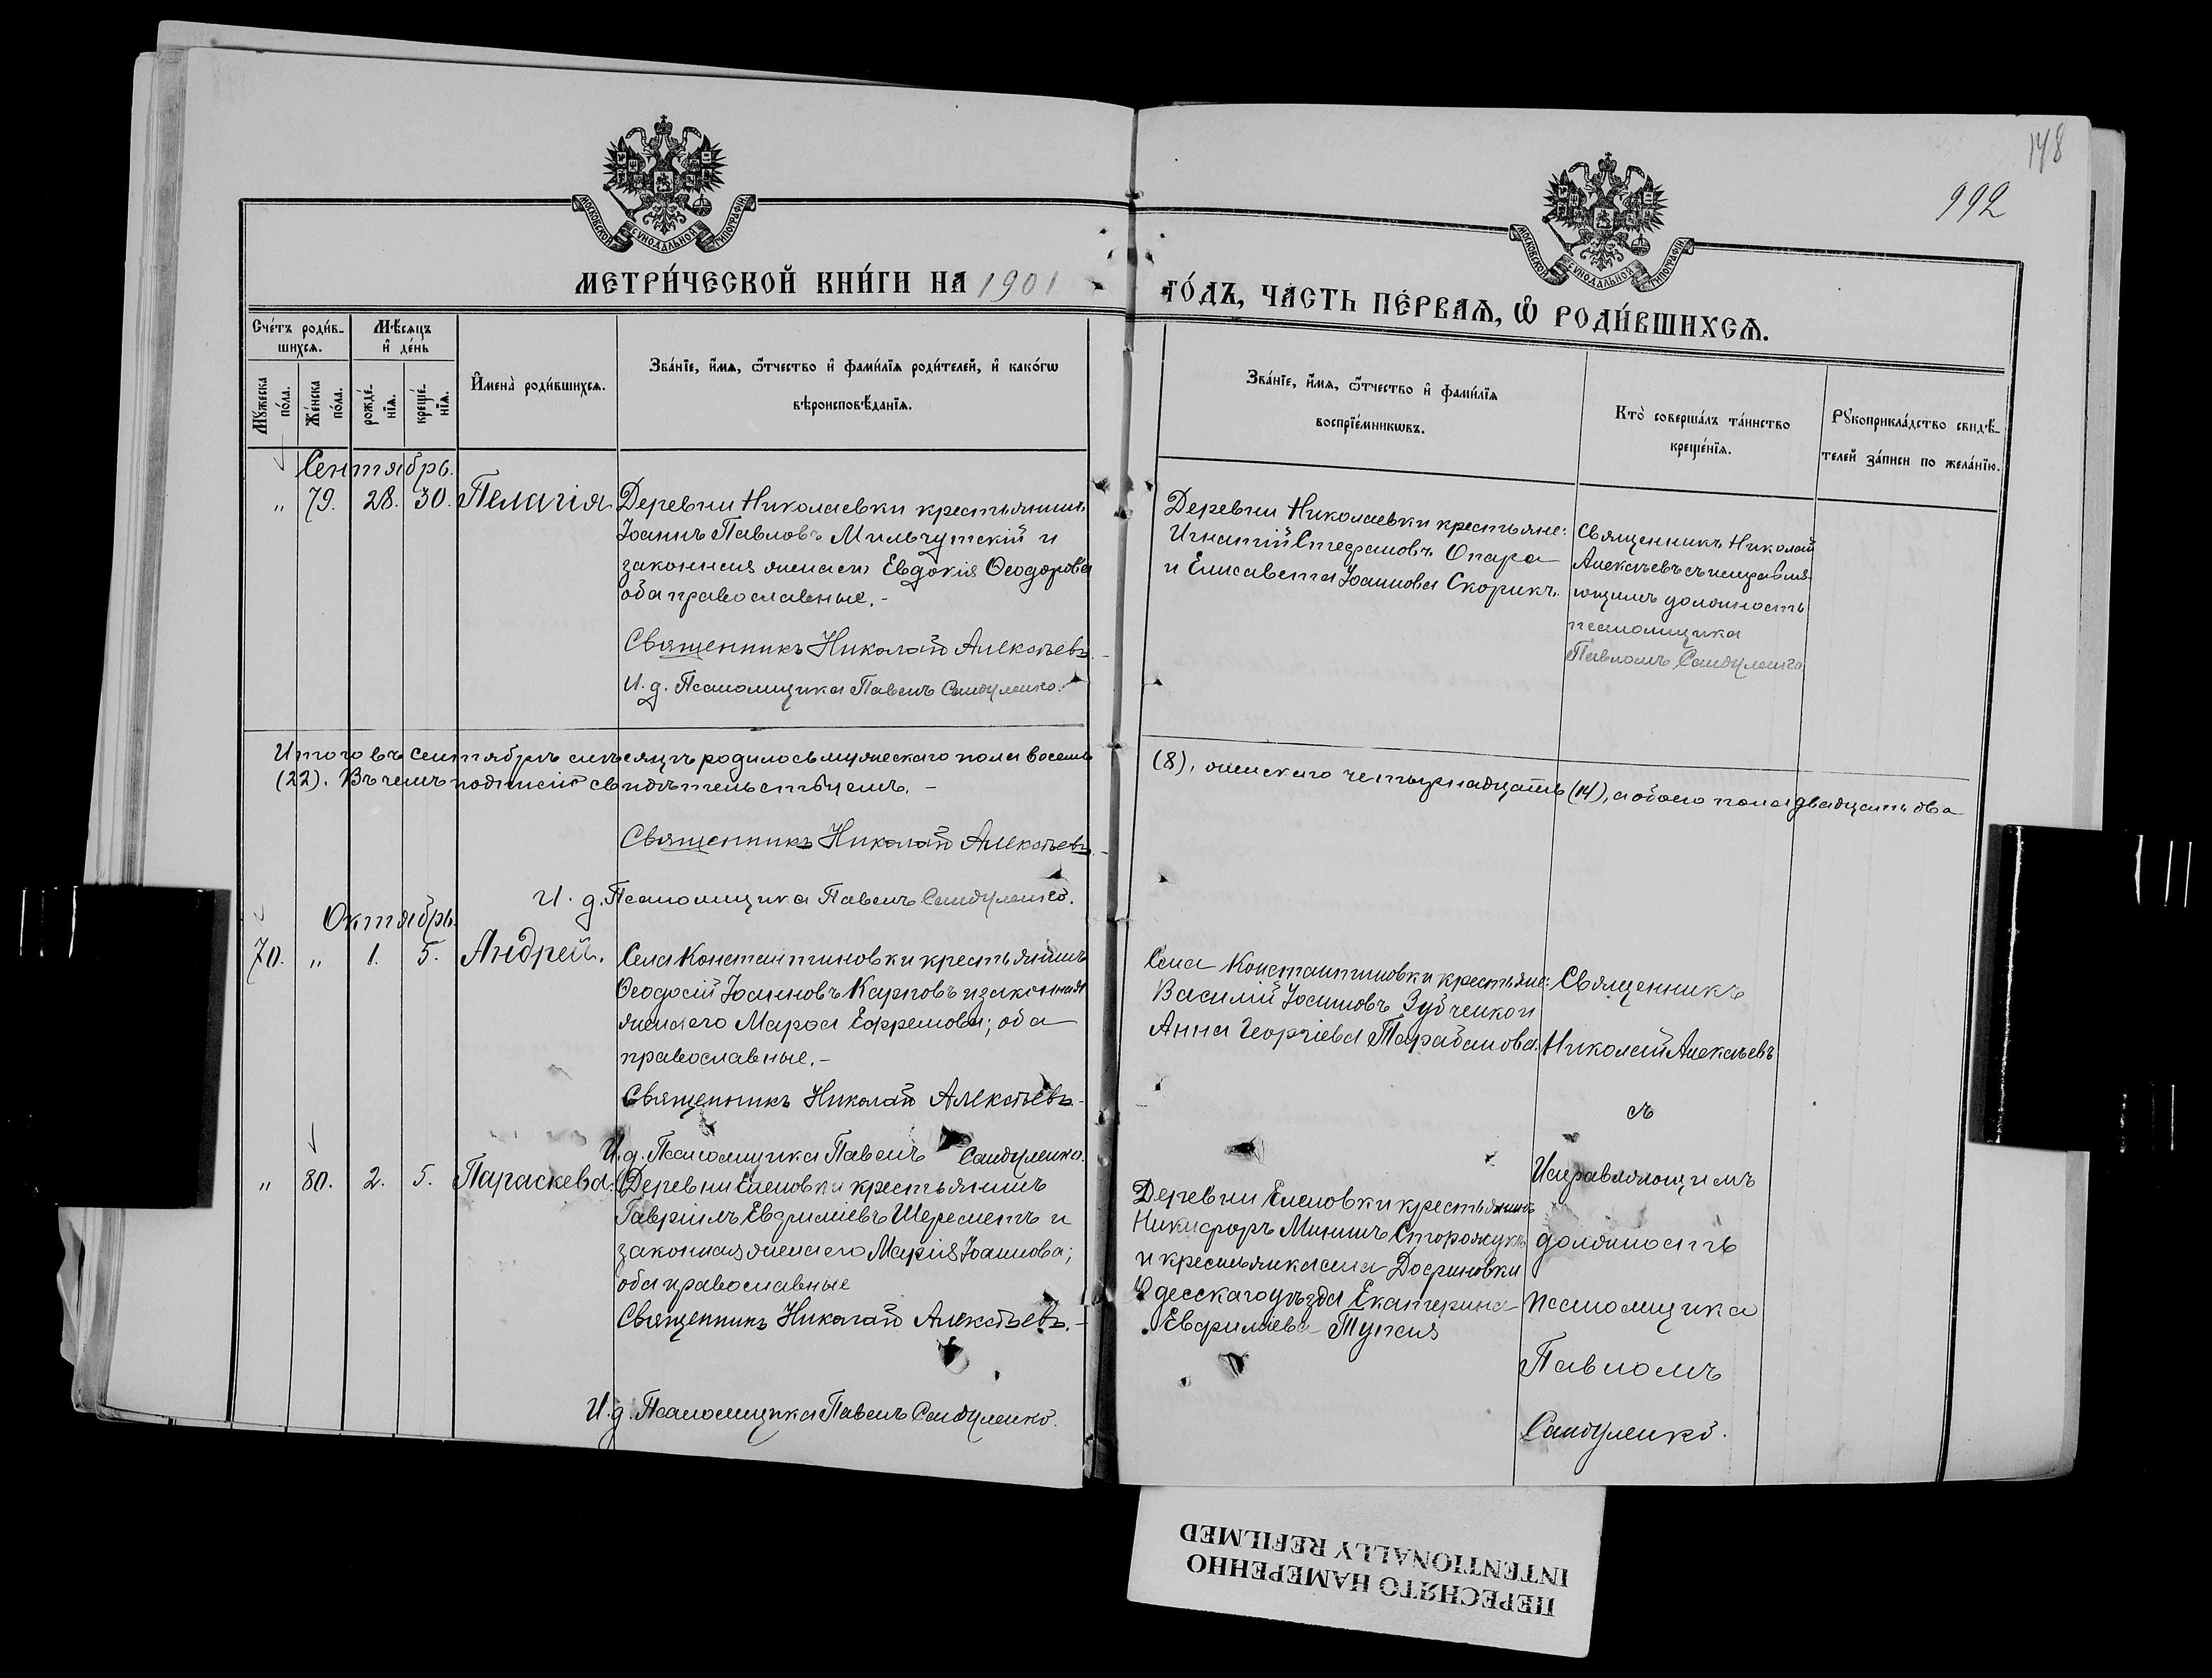 148
992
МОСКОВСКОЙ СѴНОДАЛЬНОЙ ТИПОГРАФІИ
МОСКОВСКОЙ СѴНОДАЛЬНОЙ ТИПОГРАФІИ
МЕТРИ́ЧЕСКОЙ КНИ́ГИ НА 1901 ГО́ДЪ, ЧА́СТЬ ПЕ́РВАѦ, Ѡ҆ РОДИ́ВШИХСѦ.
Сче́тъ роди́в-
шихсѧ.
Мѣ́сѧцъ
и҆ де́нь
Мꙋ́жеска
по́ла.
Же́нска
по́ла.
рожде́-
нїѧ.
креще́-
нїѧ.
И҆мена̀ роди́вшихсѧ.
Зва́нїе, и҆́мѧ, ѻ҆́тчество и҆ фами́лїѧ роди́телей, и҆ како́гѡ
вѣроисповѣ́данїѧ.
Зва́нїе, и҆́мѧ, ѻ҆́тчество и҆ фами́лїѧ
воспрїе́мникѡвъ.
Кто̀ соверша́лъ та́инство
креще́нїѧ.
Рꙋкоприкла́дство свидѣ́-
телей за́писи по жела́нїю.
Сентябрь.
" 79. 28. 30. Пелагія
Деревни Николаевки крестьянинъ
Іоаннъ Павловъ Мильчутскій и
законная жена его Евдокія Ѳеодорова
оба православные.-
Священникъ Николай Алексѣевъ.-
И. д. Псаломщика Павелъ Сандуленко.
Деревни Николаевки крестьяне:
Игнатій Стефановъ Опара
и Елисавета Іоаннова Скорикъ.
Священникъ Николай
Алексѣевъ съ исправля-
ющимъ должность
псаломщика
Павломъ Сандуленко
Итого въ сентябрѣ мѣсяцѣ родилось мужескаго пола восемь (8), женскаго четырнадцать (14), а обоего пола двадцать два
(22). Въ чемъ подписью свидѣтельствуемъ.-
Священникъ Николай Алексѣевъ.-
И. д. Псаломщика Павелъ Сандуленко.
Октябрь.
70. " 1. 5. Андрей.
Села Константиновки крестьянинъ
Ѳеодосій Іоанновъ Карповъ и законная
жена его Марѳа Ефремова; оба
православные.-
Священникъ Николай Алексѣевъ.-
И. д. Псаломщика Павелъ Сандуленко.
Села Константиновки крестьяне:
Василій Іоанновъ Зубченко и
Анна Георгіева Тарабанова.
Священникъ
Николай Алексѣевъ
съ
Исправляющимъ
должность
псаломщика
Павломъ
Сандуленко.
" 80. 2. 5. Параскева.
Деревни Еленовки крестьянинъ
Гавріилъ Евфиміевъ Шереметъ и
законная жена его Марія Іоаннова;
оба православные
Священникъ Николай Алексѣевъ.-
И. д. Псаломщика Павелъ Сандуленко.
Деревни Еленовки крестьянинъ
Никифоръ Мининъ Сторожукъ
и крестьянка села Дофиновки
Одесскаго уѣзда Екатерина
Евфиміева
ПЕРЕСНЯТО НАМЕРЕННО
INTENTIONALLY REFILMED